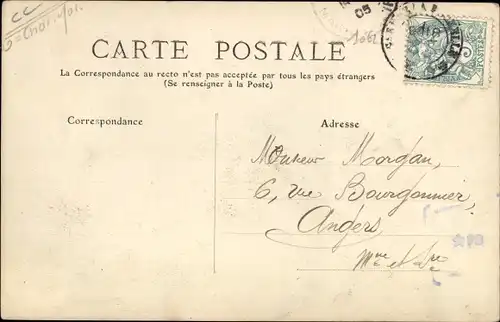 CC
05
1062
CARTE POSTALE
La Correspondance au recto n'est pas acceptée par tous les pays étrangers
(Se renseigner à la Poste)
Correspondance
Adresse
Monsieur Morgan,
6, rue Bourgonnier,
Angers
Mne et Lre